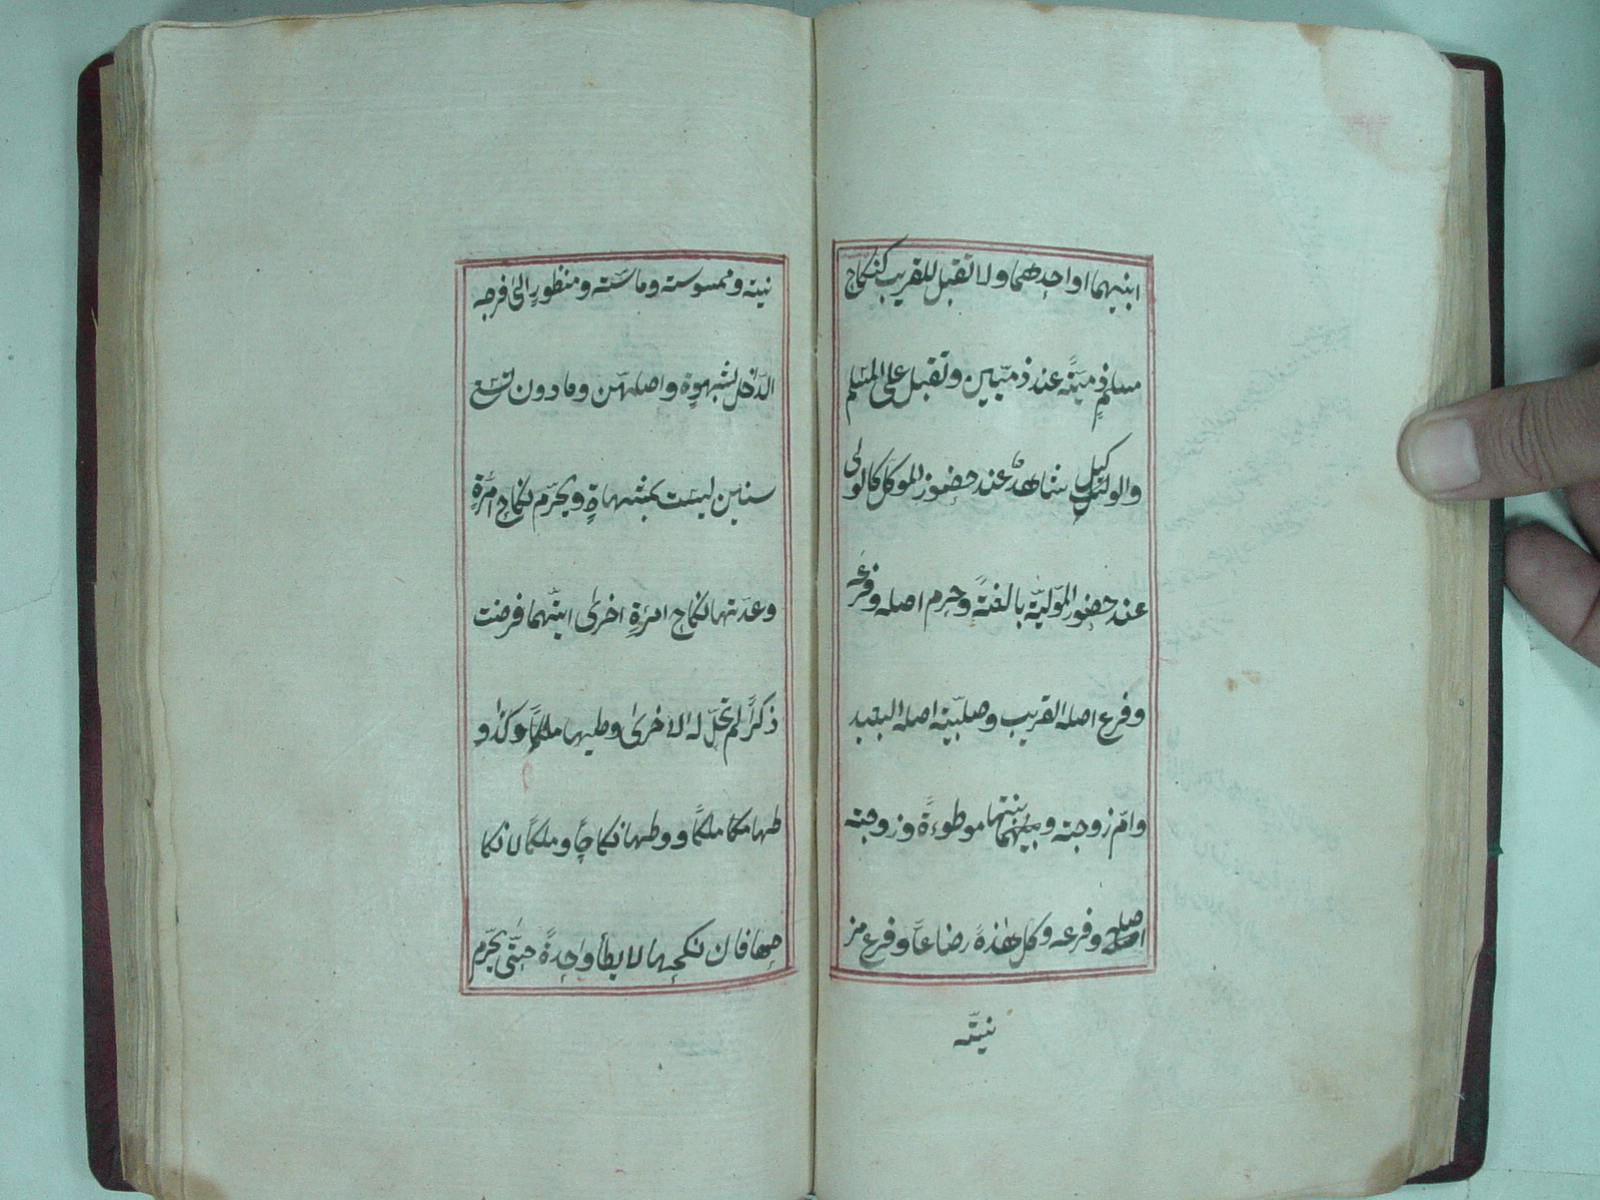 ابنيهما او احدهما ولا تقبل للقريب كنكاح
مسلمٍ ذميّةً عند ذميّين وتقبل على المسلم
والوكيل شاهدٌ عند حضور الموكل كالولى
عند حضور المولّية بالغةً وحرم اصله وفرعه
وفرع اصله القريب وصلبيّة اصله البعيد
وامّ زوجته وبنتها موطوءةً وزوجته
اصله وفرعه وكل هٰذه رضاعاً وفرع مز
نيتّه
نيته وممسوسته وماسّته ومنظورٍ الىٰ فرجه
الدّاخل بشهوةٍ واصلهنّ وما دون تسع
سنين ليست بمشتهاةٍ ويحرّم نكاح امرٔةٍ
وعدّتها نكاح امرٔةٍ اخرىٰ ايتّهما فرضت
ذكراً لم تحلّ له الاخرىٰ وطيها ملكاً وكذا و
طيها ملكاً ووطيها نكاحاً وملكاً لا نكا
حها فان نكحها لا يطأ واحدةً حتّى يحرّم